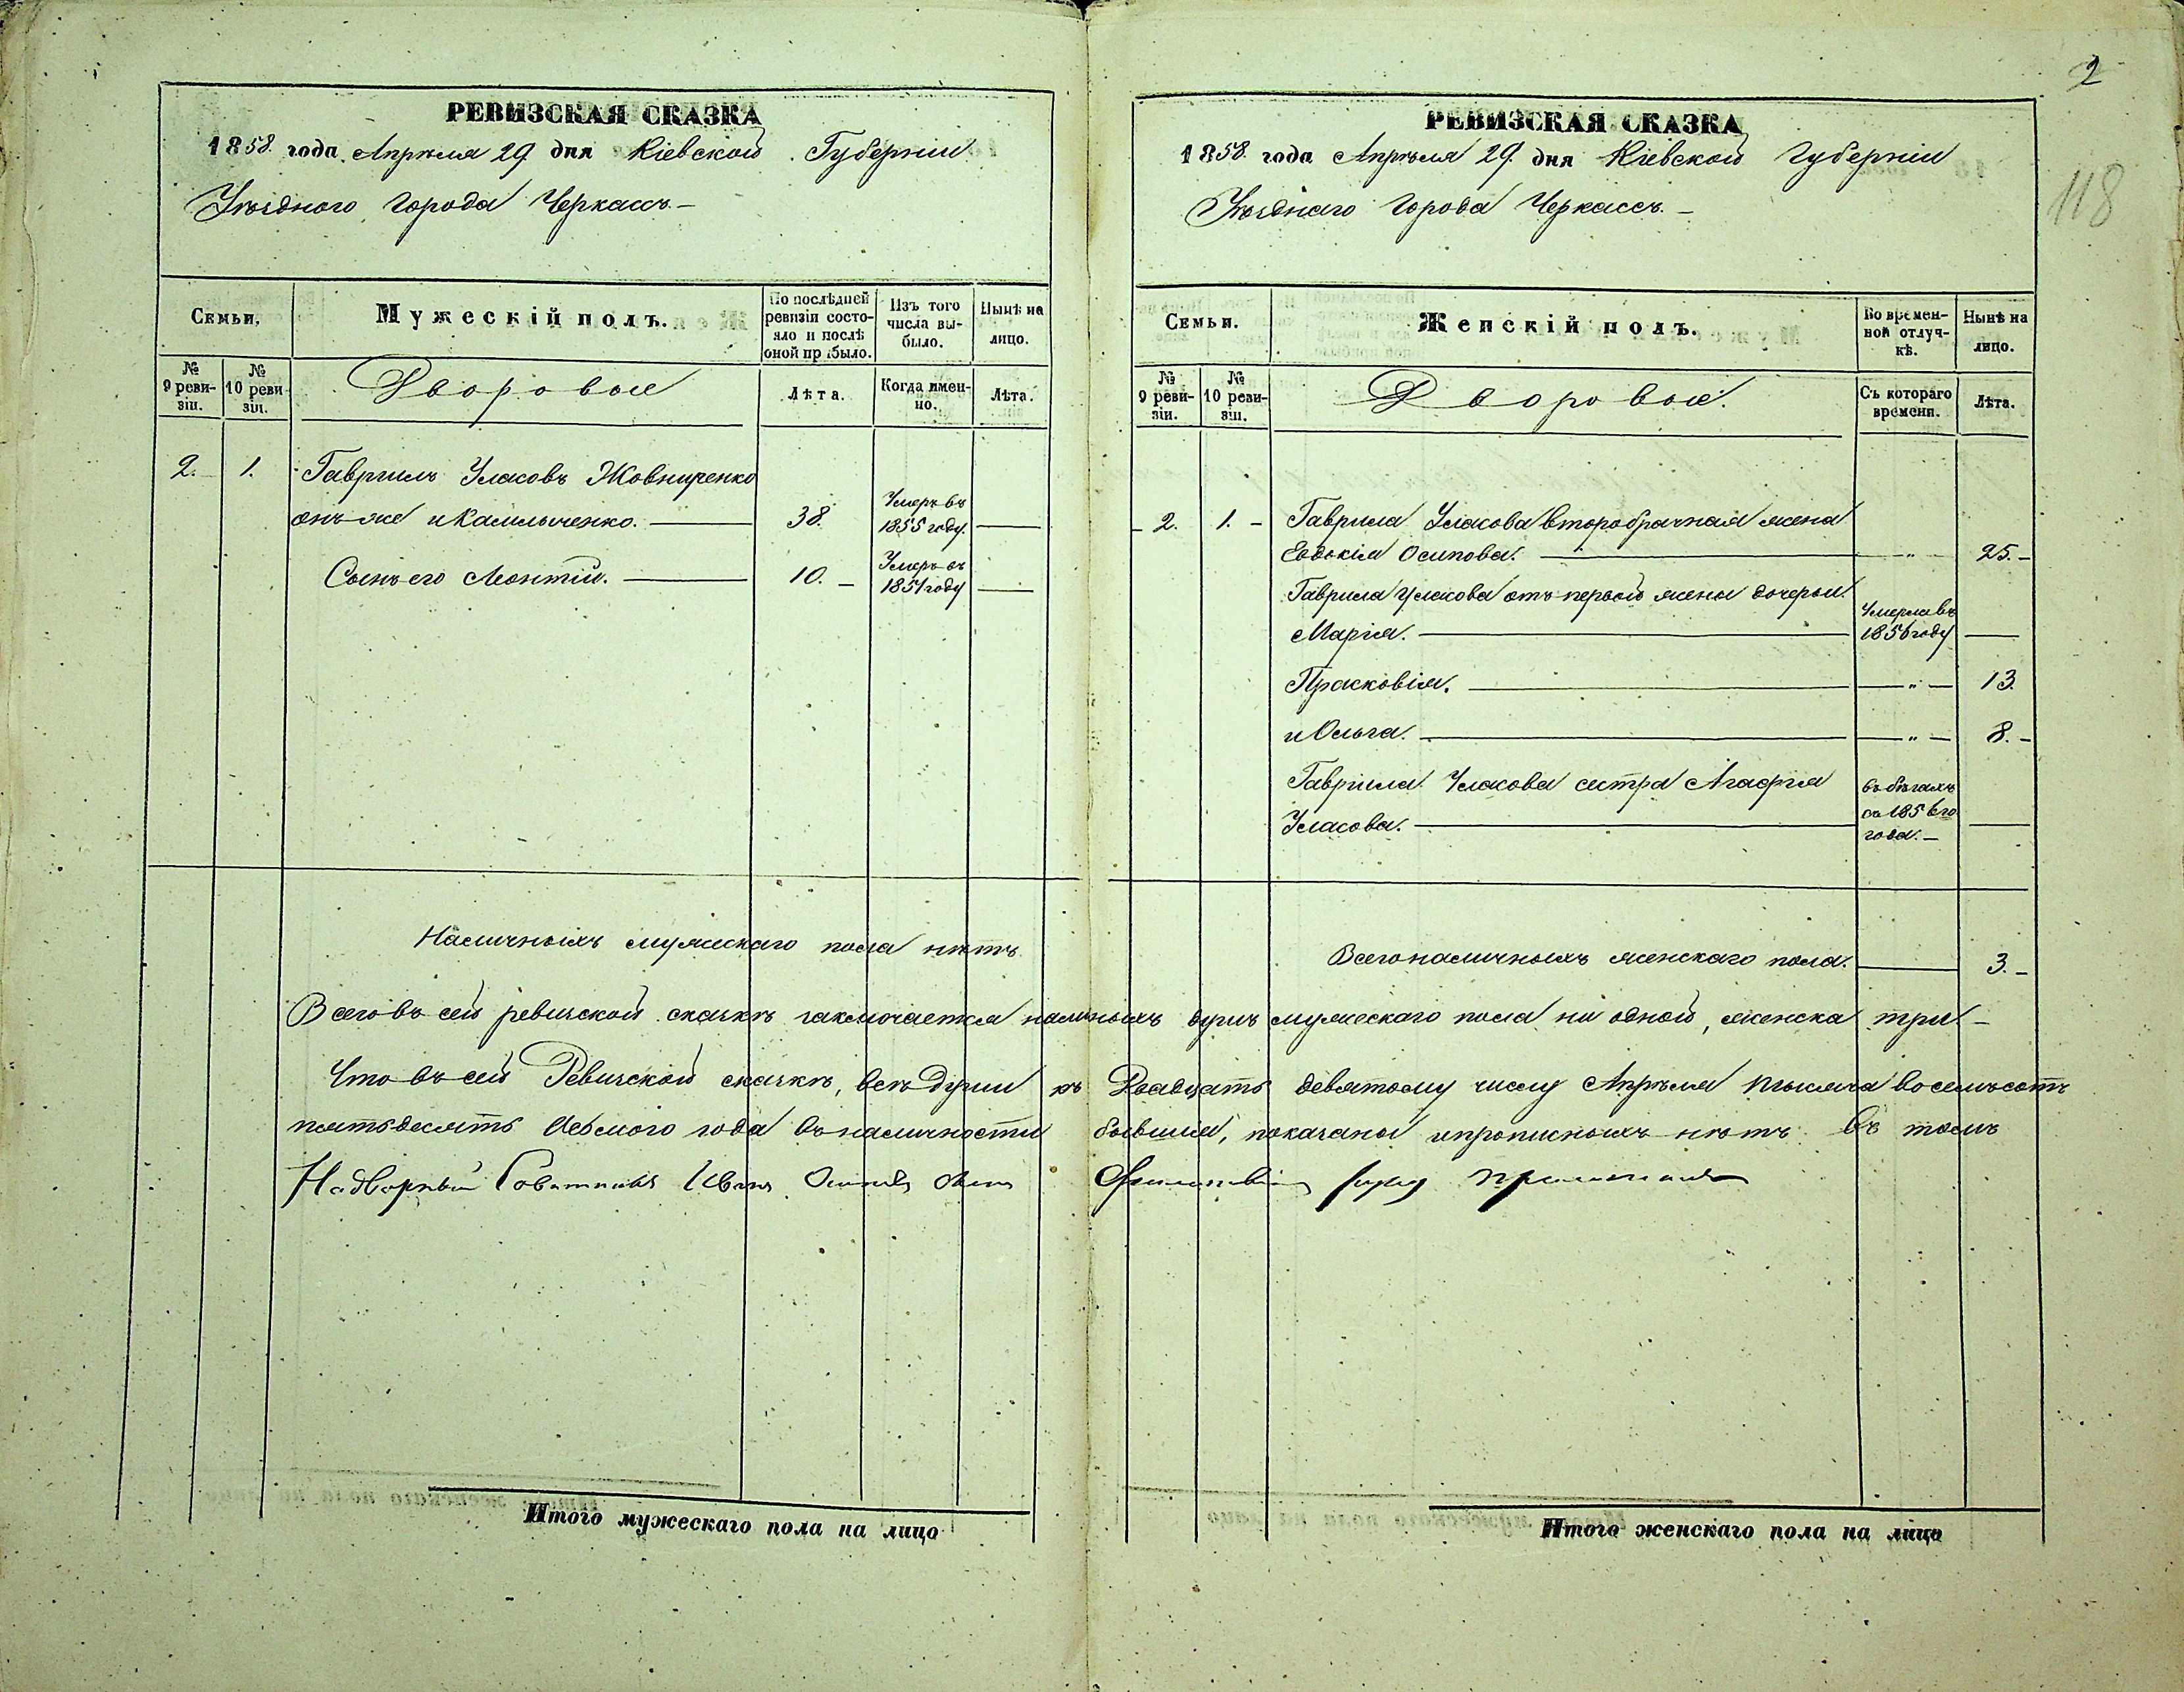 2
118
РЕВИЗСКАЯ СКАЗКА
1858. года Апрѣля 29 дня Кіевской Губерніи
Уѣзднаго города Черкассъ.-
Семьи,
Мужескій полъ.
По послѣдней ревизіи состояло и послѣ оной прибыло.
Изъ того числа выбыло.
Нынѣ на лицо.
№ 9 ревизіи.
№ 10 ревизіи.
Дворовые
Лѣта.
Когда именно.
Лѣта.
2. 1. Гаврилъ Уласовъ Жовниренко
онъ же и Камлыченко. 38. Умеръ въ 1855 году.
Сынъ его Леонтій. 10. Умеръ въ 1851 году
Наличныхъ мужескаго пола нѣтъ
РЕВИЗСКАЯ СКАЗКА
1858. года Апрѣля 29. дня Кіевской Губерніи
Уѣзднаго Города Черкассъ.-
Семьи.
Женскій полъ.
Во временной отлучкѣ.
Нынѣ на лицо.
№ 9 ревизіи.
№ 10 ревизіи.
Дворовые.
Съ котораго времени.
Лѣта.
2. 1. Гаврила Уласова второбрачная жена
Евдокія Осипова. „ 25.
Гаврила Уласова отъ первой жены дочери
Марія. Умерла въ 1856 году
Прасковія. „ 13.
и Ольга. „ 8.
Гаврила Уласова сестра Агафія
Уласова. въ бѣгахъ съ 1856го года.
Всего наличныхъ женскаго пола. 3.
Всего въ сей ревизской сказкѣ заключается наличныхъ душъ мужескаго пола ни одной, женска три.-
Что въ сей Ревизской сказкѣ, всѣ души къ Двадцать девятому числу Апрѣля тысяча восемьсотъ
пятьдесятъ осьмого года въ наличности бывшія, показаны и прописныхъ нѣтъ. Въ томъ
Надворный Совѣтникъ Иванъ руку приложилъ
Итого мужескаго пола на лицо
Итого женскаго пола на лицо